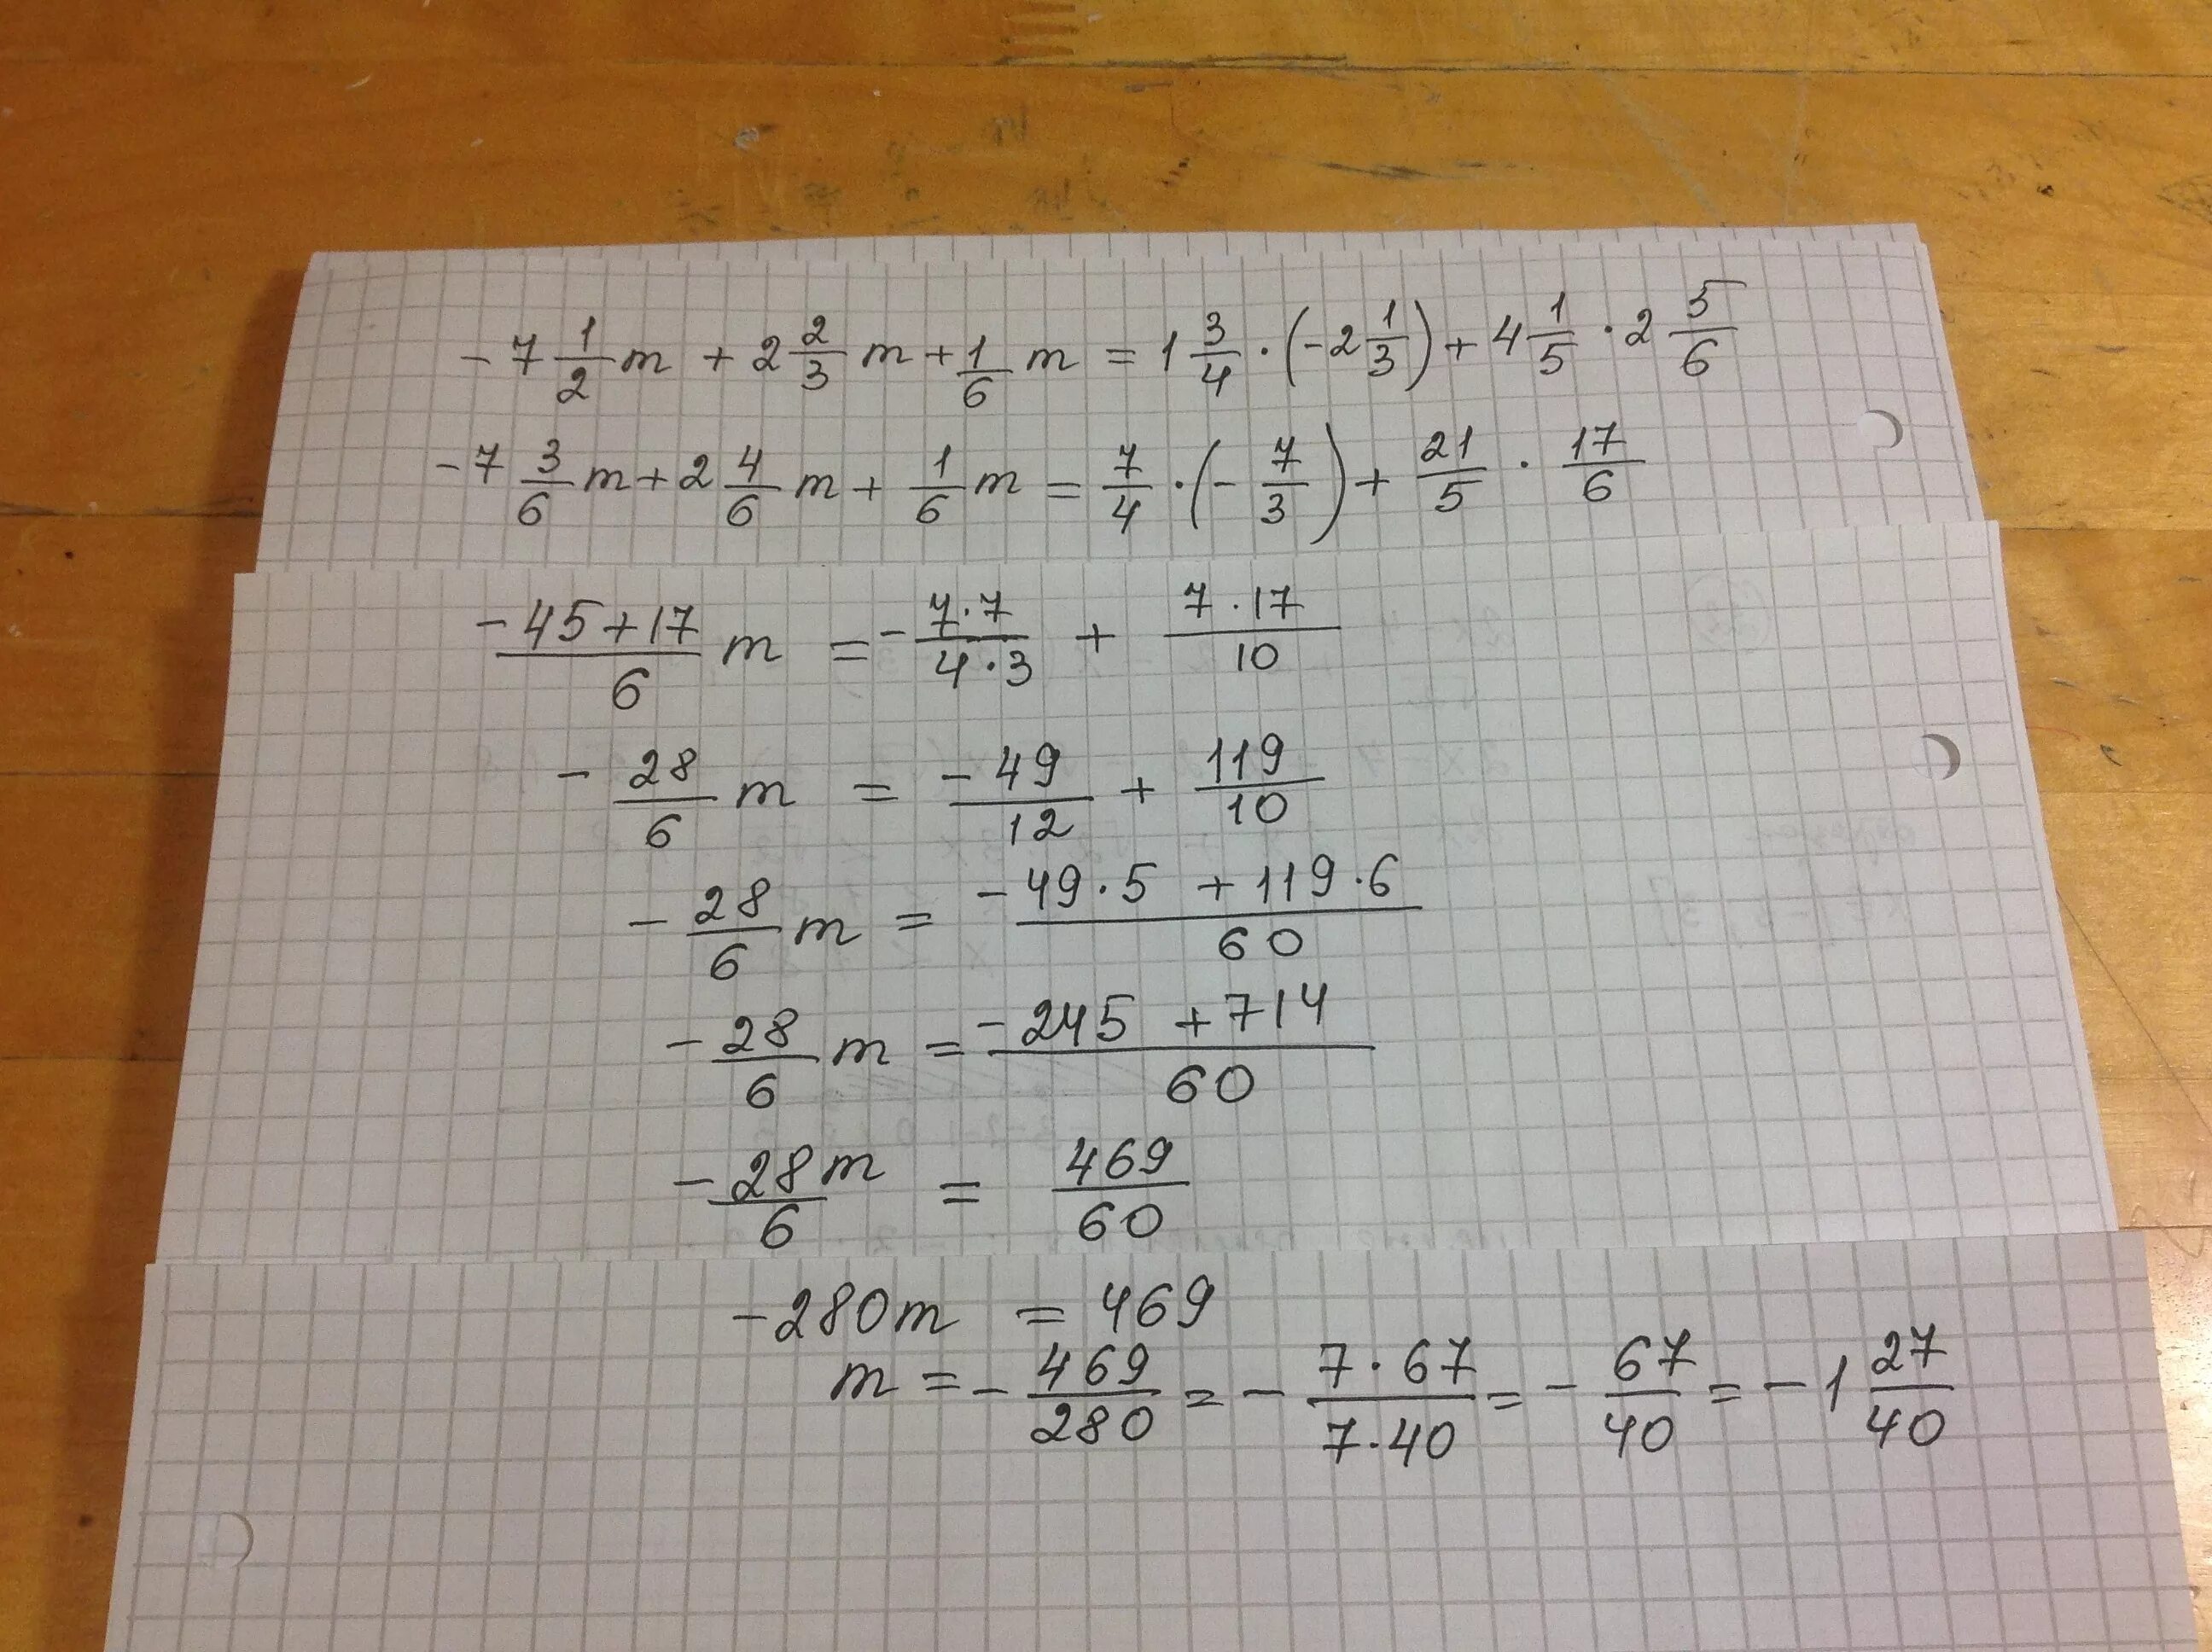 -7 1/2 m + 2 2/3 m + 1/6 m = 1 3/4 · (-2 1/3) + 4 1/5 · 2 5/6
-7 3/6 m + 2 4/6 m + 1/6 m = 7/4 · (- 7/3) + 21/5 · 17/6
(-45+17)/6 m = - (7·7)/(4·3) + (7·17)/10
- 28/6 m = -49/12 + 119/10
- 28/6 m = (-49·5 + 119·6)/60
- 28/6 m = (-245 + 714)/60
- 28m/6 = 469/60
-280m = 469
m = - 469/280 = - (7·67)/(7·40) = - 67/40 = -1 27/40